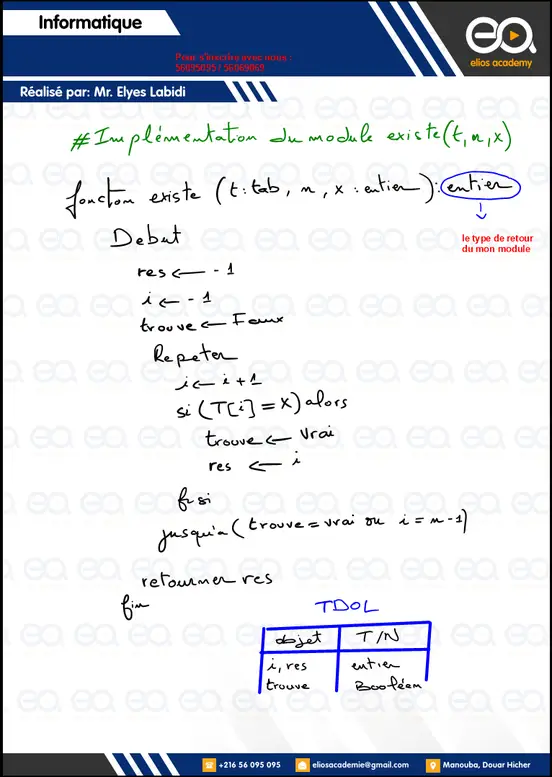 Informatique
eo
elios academy
Pour s'inscrire avec nous :
56095095 / 56069069
Réalisé par: Mr. Elyes Labidi
# Implémentation du module existe(t,n,x)
fonction existe (t:tab, n, x : entier): entier
le type de retour
du mon module
Debut
res ← -1
i ← -1
trouve ← Faux
Repeter
i ← i + 1
si (T[i] = X) alors
trouve ← Vrai
res ← i
fin si
jusqu'a ( trouve = vrai ou i = n-1)
retourner res
fin
TDOL
objet T/N
i, res entier
trouve Booléen
+216 56 095 095 eliosacademie@gmail.com Manouba, Douar Hicher